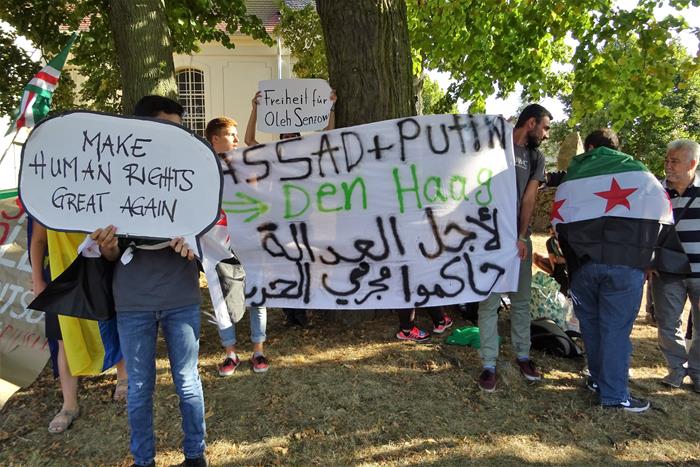 MAKE
HUMAN RIGHTS
GREAT AGAIN
Freiheit für
Oleh Senzow
ASSAD+PUTIN
→ Den Haag
لأجل العدالة
حاكموا مجرمي الحرب